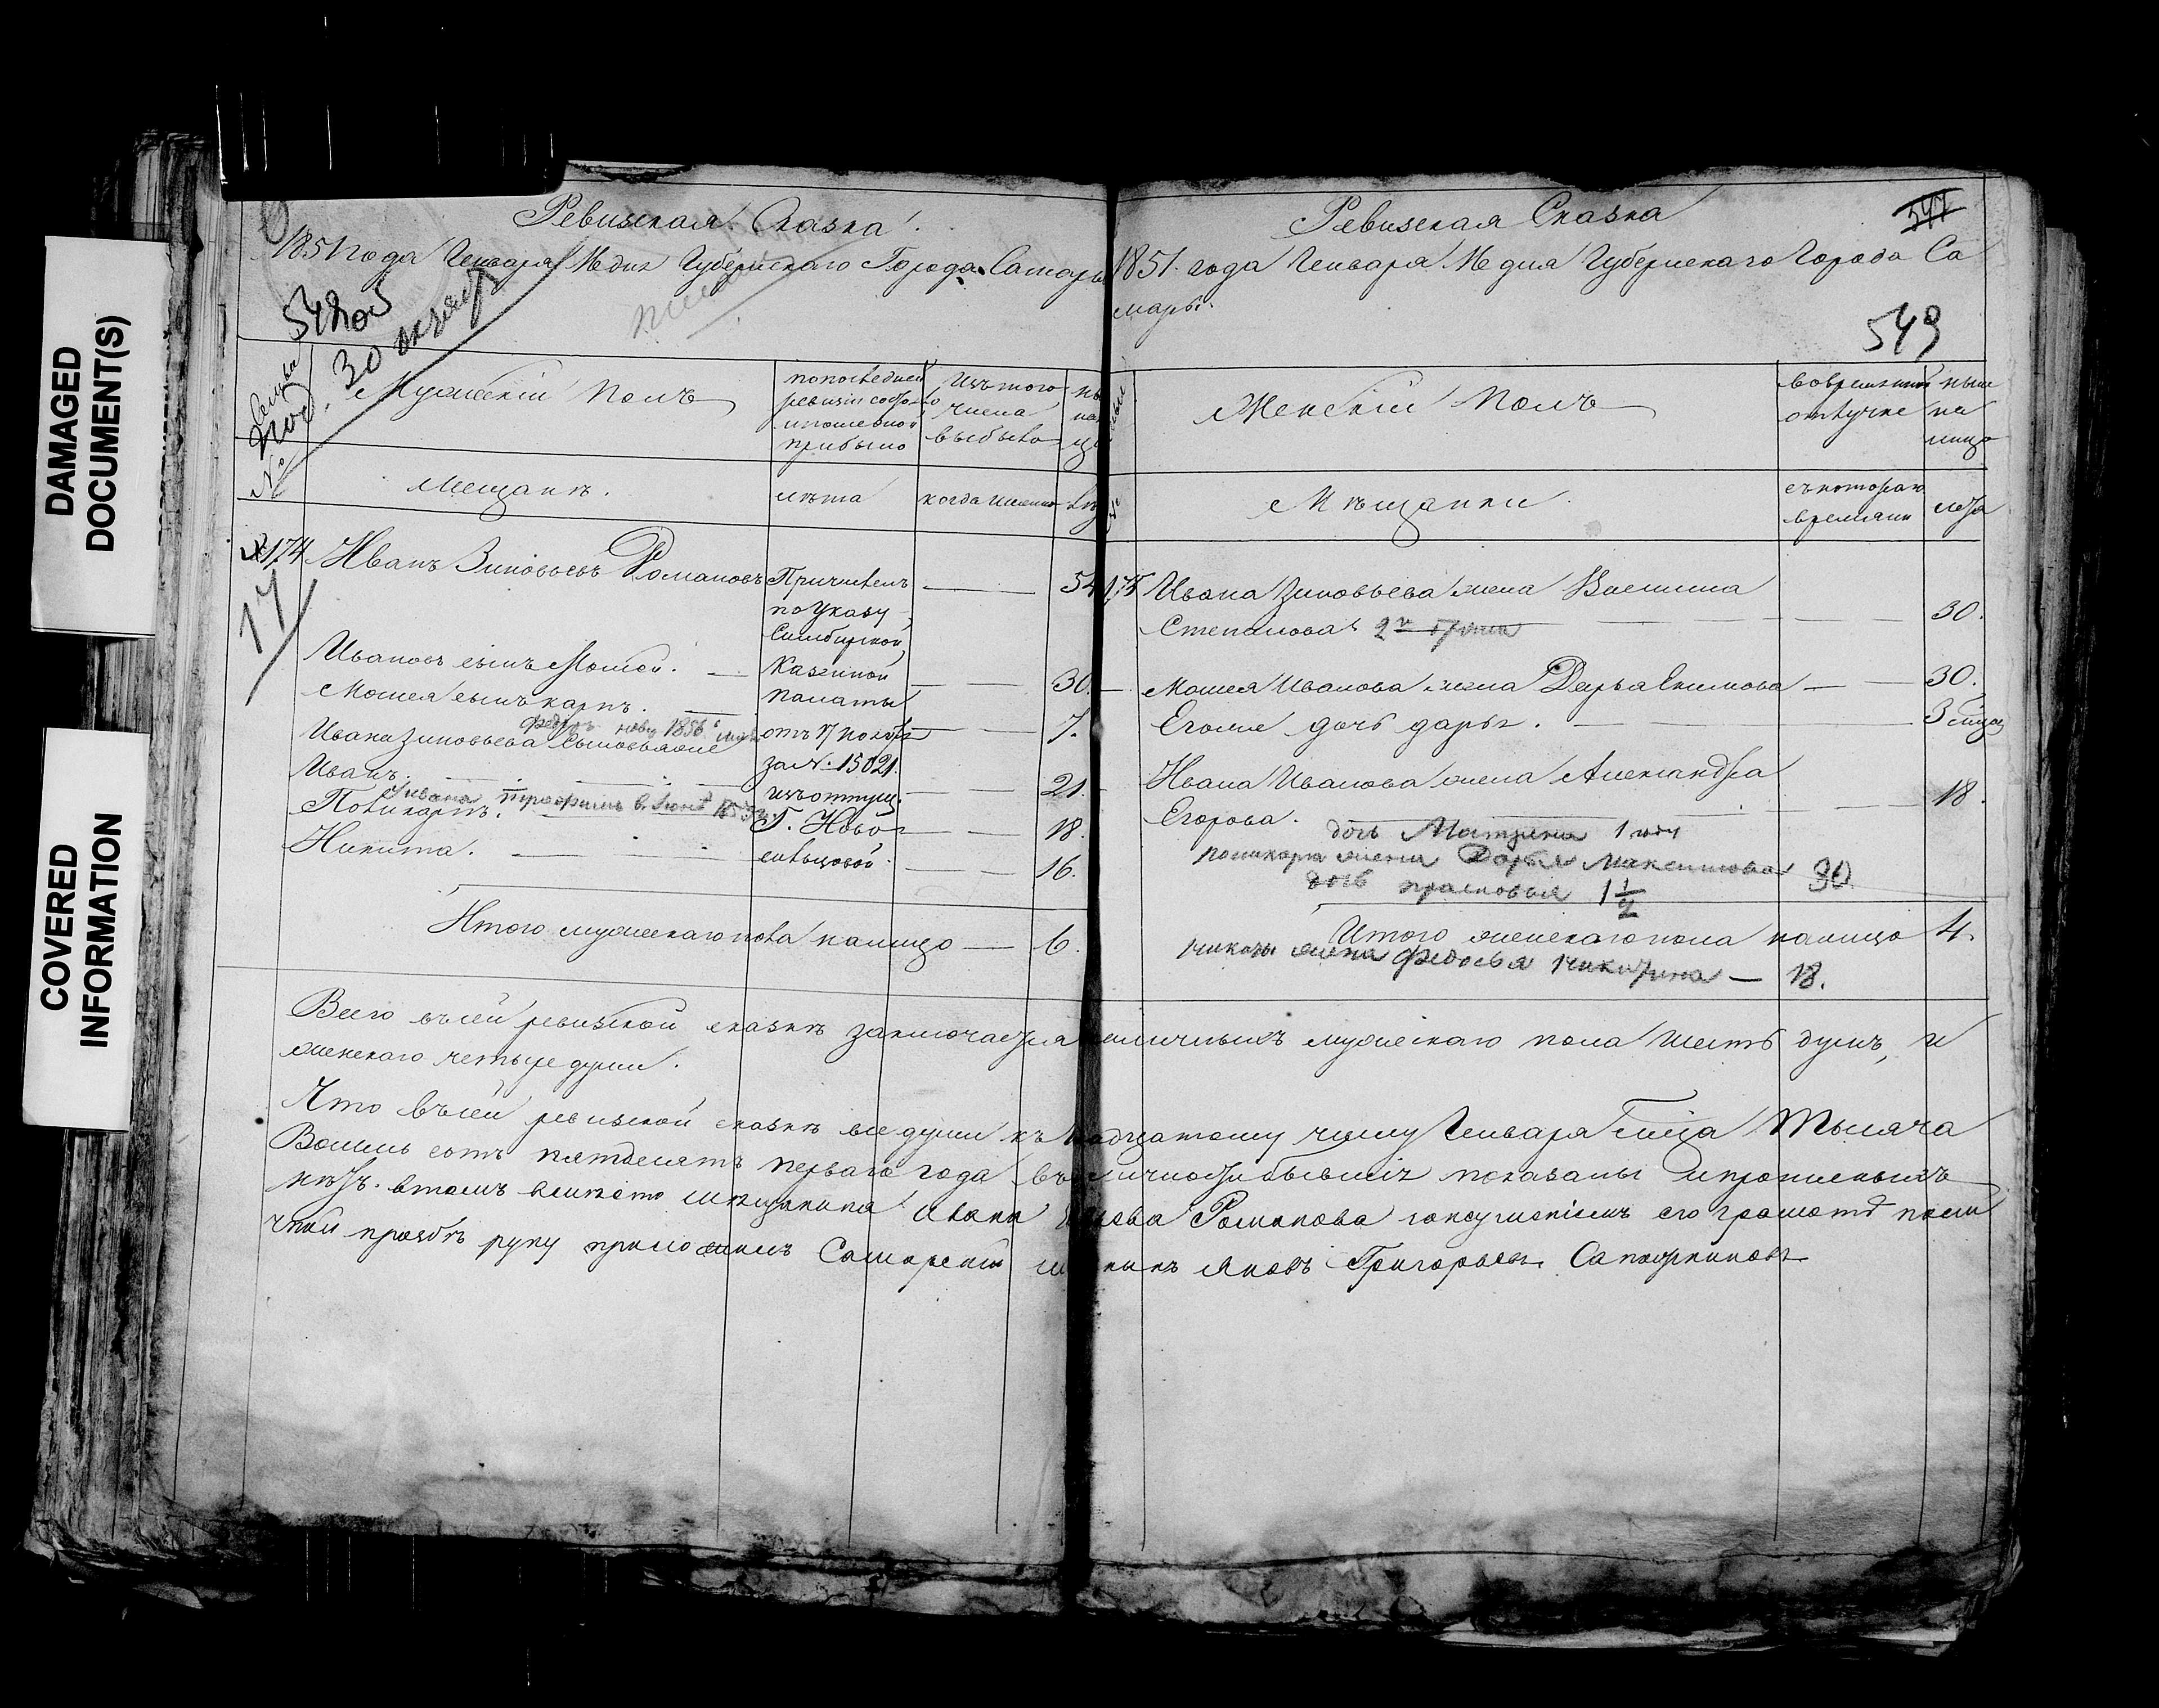 DAMAGED
DOCUMENT(S)
COVERED
INFORMATION
Ревизская Сказка
1851 года Генваря дня Губернскаго Города Самары
548 об
30 октября
№
Мужеский полъ
по последней
ревизии состо
или после оной
прибыло
Изъ того
числа
выбыло
Мещане.
лета
когда именно
174 Иванъ Зиновьевъ Романовъ
17
Причисленъ
по Указу
Симбирской
Казенной
палаты
от 17 ноября
за № 15021
изъ отпущ.
Г. Ново
сильцовой
54
Ивановъ сынъ Мосей. 30.
Мосея сынъ карпъ. 7.
Ивана Зиновьева сыновья
Иванъ. 21.
Поликарпъ. 18.
Никита. 16.
Итого мужескаго пола налицо — 6.
Ревизская Сказка
547
1851 года Генваря дня Губернскаго Города Са
мары.
549
Женский Полъ
во временной
отлучке
ныне
на
лицо
Мещанки
съ котораго
времяни
лета
175 Ивана Зиновьева жена Василиса
Степанова 30.
Мосея Иванова жена Дарья Екимова — 30.
Егоже дочь дарья. 3 месяц
Ивана Иванова жена Александра
Егорова. 18.
дочь Матрена 1 году
поликарпа жена Дарья Максимова 30
дочь прасковья 1 1/2
Итого женскаго пола налицо 4.
никиты жена Федосья никитина — 18.
Всего въ сей ревизской сказке заключается наличныхъ мужескаго пола шесть душъ, и
женскаго четыре души.
Что въ сей ревизской сказке все души къ надцатому числу Генваря месяца Тысяча
Восемь сотъ пятдесятъ перваго года въ наличности бывшие показаны и прописныхъ
нетъ. в томъ вместо мещанина Ивана Романова за неумениемъ его грамоте по ли
чной прозбе руку приложилъ Самарский мещанинъ Яковъ Григорьевъ Сапожниковъ